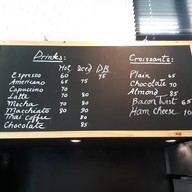 Drinks:
Hot Iced DB
Espresso 60 75
Americano 65 75
Capuccino 70
Latte 70 80
Mocha 70 80
Macchiato 80 90
Thai coffee 80
Chocolate 85
Croissants:
Plain 65
Chocolate 70
Almond 85
Bacon Twist 65
Ham Cheese